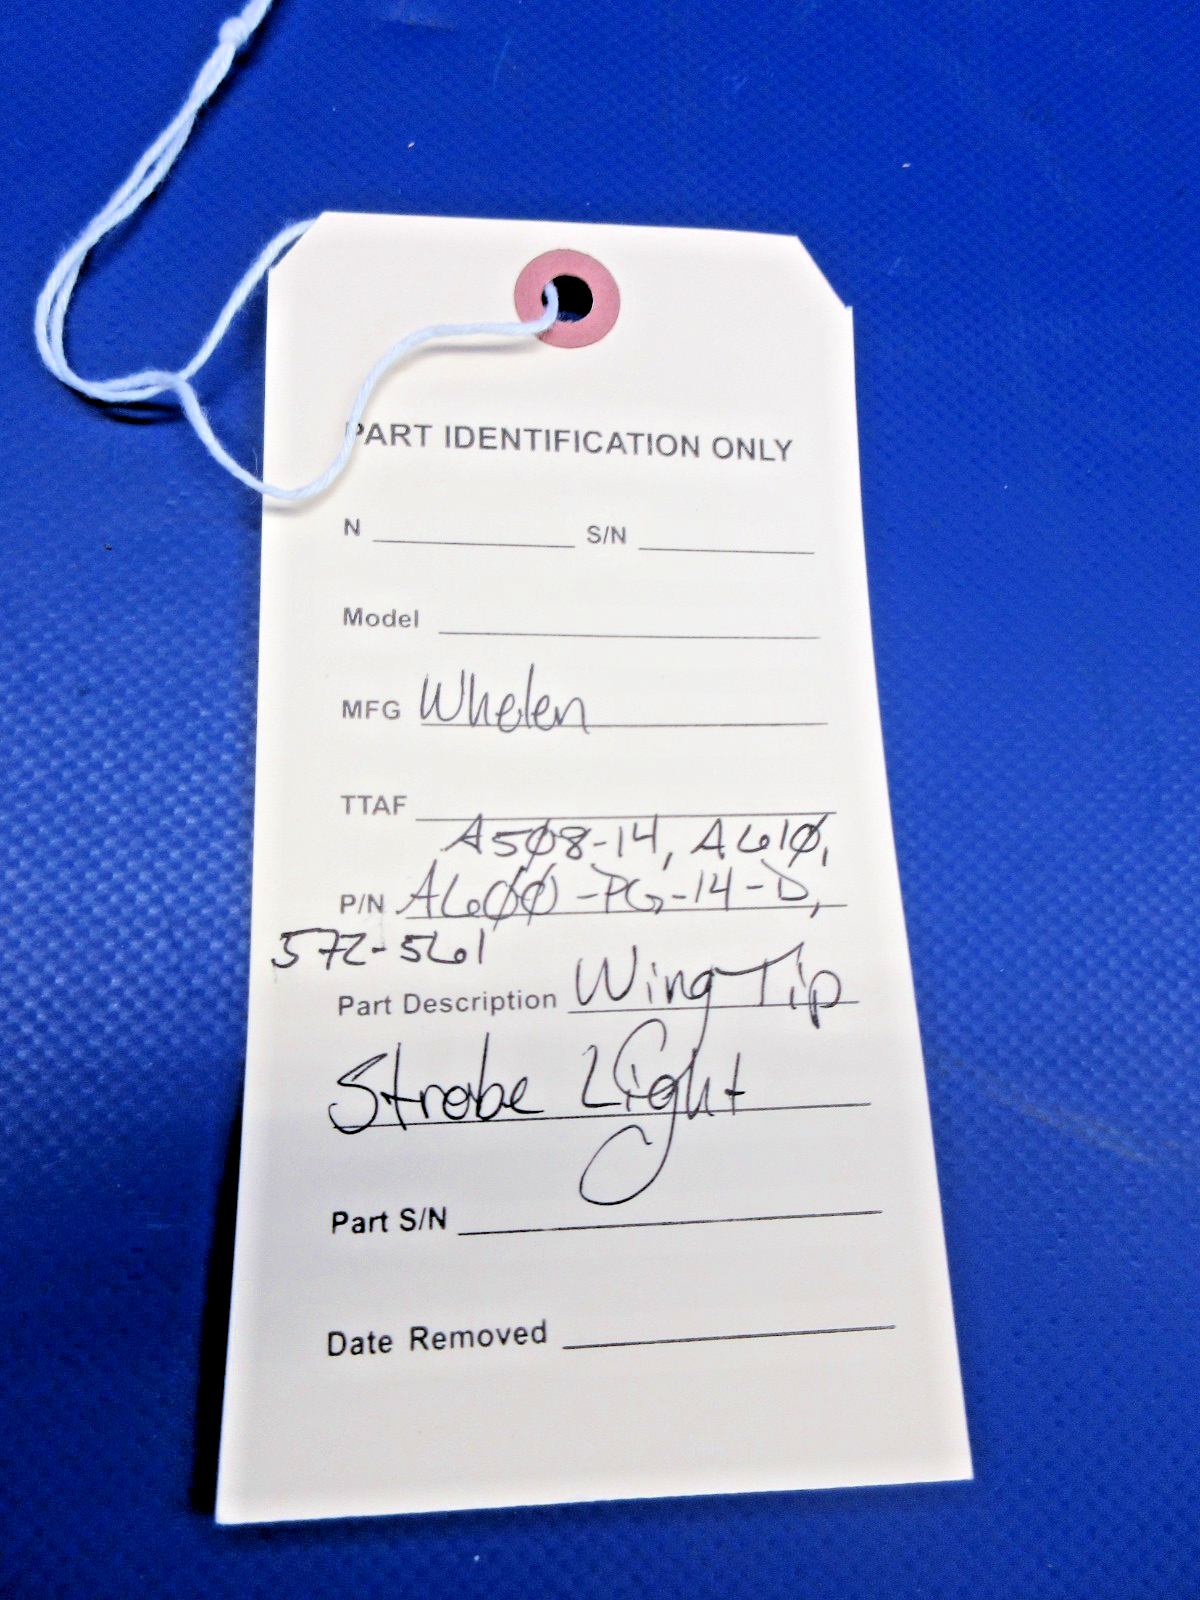 PART IDENTIFICATION ONLY
N ____ S/N ____
Model ____
MFG Whelen
TTAF ____
A508-14, A610,
P/N A600-PG-14-D,
572-561
Part Description Wing Tip
Strobe Light
Part S/N ____
Date Removed ____